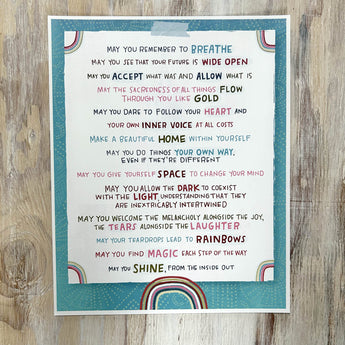 MAY YOU REMEMBER TO BREATHE
MAY YOU SEE THAT YOUR FUTURE IS WIDE OPEN
MAY YOU ACCEPT WHAT WAS AND ALLOW WHAT IS
MAY THE SACREDNESS OF ALL THINGS FLOW
THROUGH YOU LIKE GOLD
MAY YOU DARE TO FOLLOW YOUR HEART AND
YOUR OWN INNER VOICE AT ALL COSTS
MAKE A BEAUTIFUL HOME WITHIN YOURSELF
MAY YOU DO THINGS YOUR OWN WAY,
EVEN IF THEY'RE DIFFERENT
MAY YOU GIVE YOURSELF SPACE TO CHANGE YOUR MIND
MAY YOU ALLOW THE DARK TO COEXIST
WITH THE LIGHT, UNDERSTANDING THAT THEY
ARE INEXTRICABLY INTERTWINED
MAY YOU WELCOME THE MELANCHOLY ALONGSIDE THE JOY,
THE TEARS ALONGSIDE THE LAUGHTER
MAY YOUR TEARDROPS LEAD TO RAINBOWS
MAY YOU FIND MAGIC EACH STEP OF THE WAY
MAY YOU SHINE, FROM THE INSIDE OUT